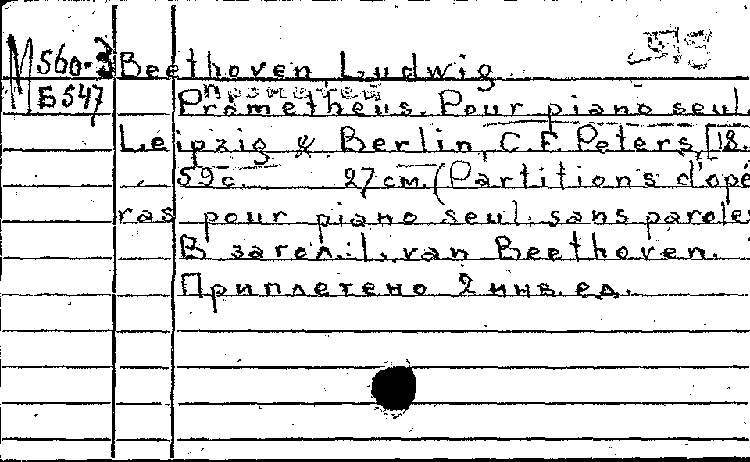 М 560-3 Beethoven, Ludwig
Б 547
Прометей
Prometheus. Pour piano seul.
Leipzig & Berlin, C. F. Peters, [18.
59 с. 27 см. (Partitions d'opé
ras pour piano seul sans parole
В загол.: L. van Beethoven.
Приплетено 2 инв. ед.